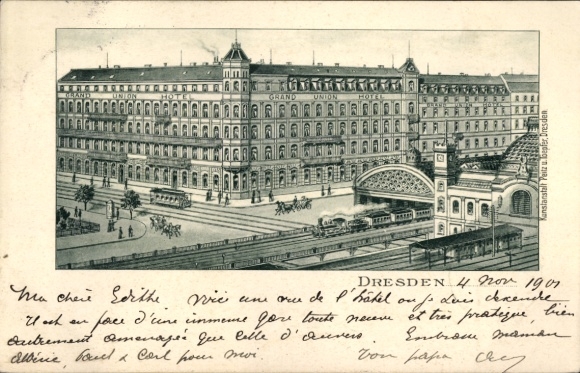 GRAND UNION HOTEL
GRAND UNION HOTEL
GRAND UNION HOTEL
Kunstanstalt Penz u. Toepfer, Dresden
DRESDEN 4 Nov 1901
Ma chère Edithe Voici une vue de l'hôtel ou je suis descendu
Il est en face d'une immense gare toute neuve et très pratique, bien
autrement aménagée que celle d'Anvers. Embrasse Maman
& Carl pour moi. Ton papa